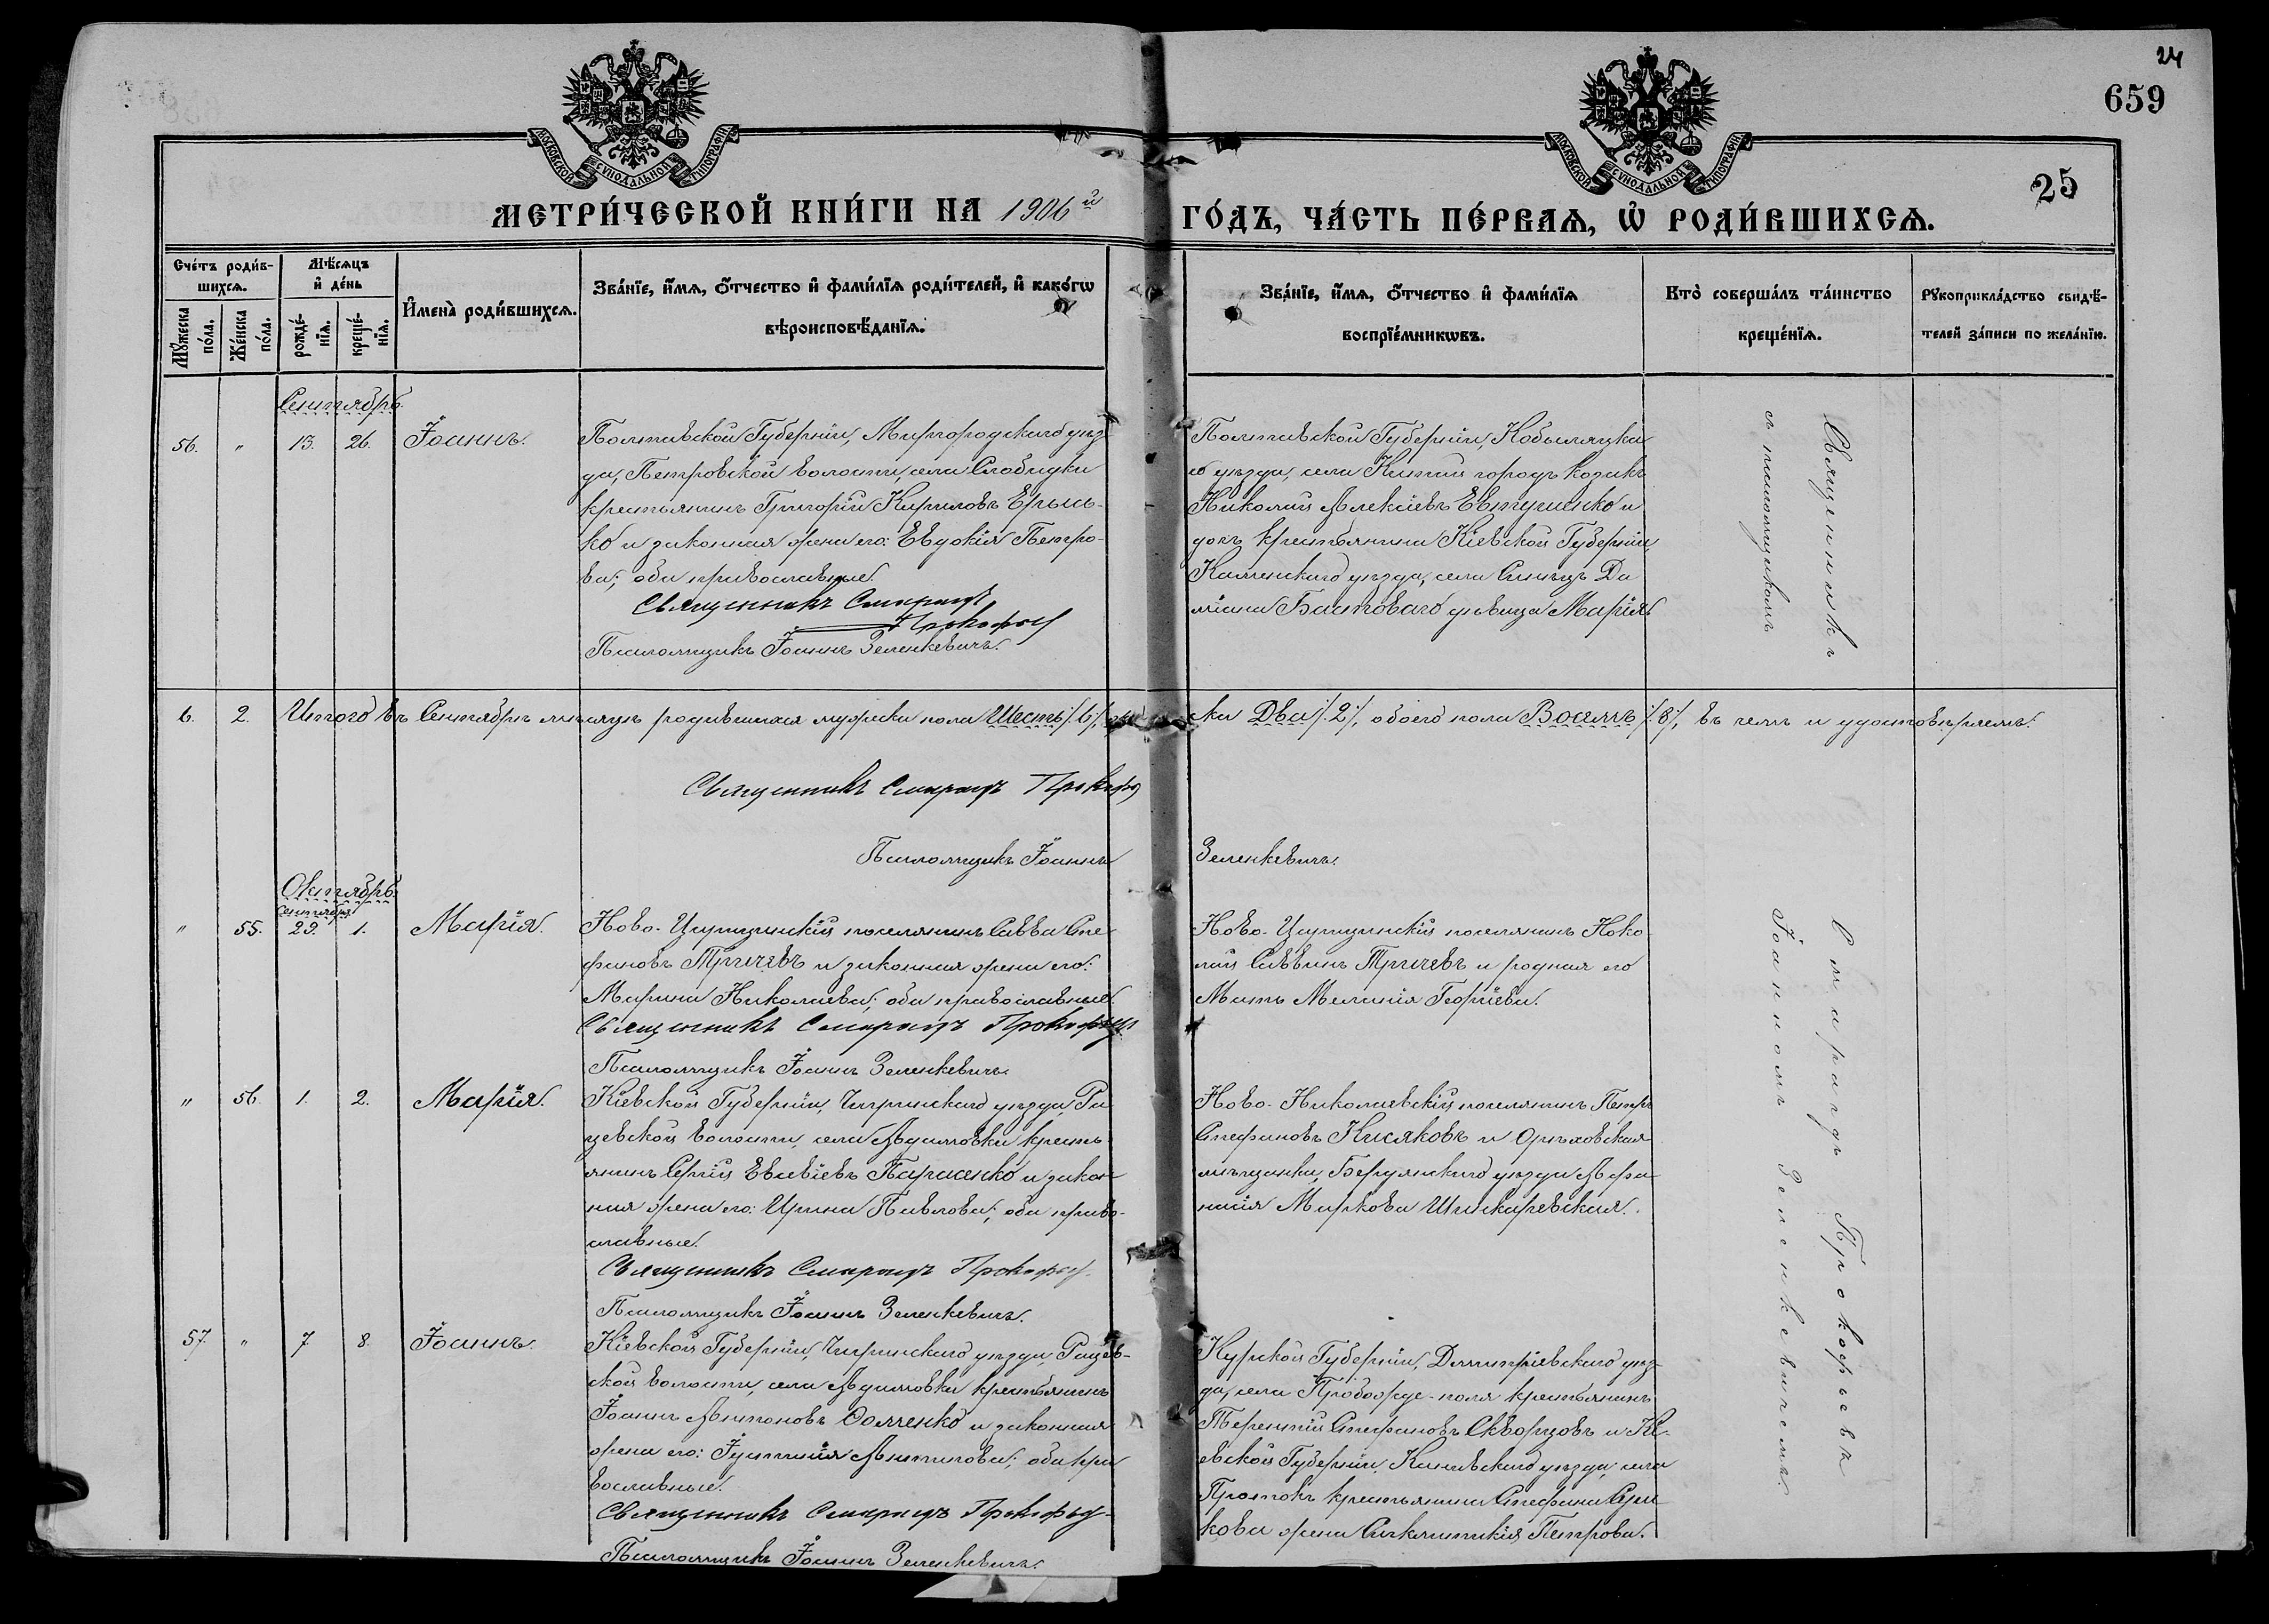 24
659
25
МОСКОВСКОЙ СѴНОДАЛЬНОЙ ТИПОГРАФІИ
МОСКОВСКОЙ СѴНОДАЛЬНОЙ ТИПОГРАФІИ
МЕТРИ́ЧЕСКОЙ КНИ́ГИ НА 1906й ГО́ДЪ, ЧА́СТЬ ПЕ́РВАѦ, Ѡ РОДИ́ВШИХСѦ.
Сче́тъ роди́в-
шихсѧ.
Мѣ́сѧцъ
и де́нь
Мꙋ́жеска по́ла.
Же́нска по́ла.
рожде́-нїѧ.
креще́-нїѧ.
Имена̀ роди́вшихсѧ.
Зва́нїе, и́мѧ, ѻ́тчество и фами́лїѧ роди́телей, и како́гѡ
вѣроисповѣ́данїѧ.
Зва́нїе, и́мѧ, ѻ́тчество и фами́лїѧ
воспрїе́мникѡвъ.
Кто̀ соверша́лъ та́инство
креще́нїѧ.
Рꙋкоприкла́дство свидѣ́-
телей за́писи по жела́нїю.
Сентябрь.
56. " 13. 26. Іоаннъ.
Полтавской Губерніи, Миргородскаго уѣз-
да, Петровской волости, села Слободки
крестьянинъ Григорій Кириловъ
ко и законная жена его: Евдокія Петро-
ва; оба православные.
Священникъ Смарагдъ
Прокофьев
Псаломщикъ Іоаннъ Зеленкевичъ.
Полтавской Губерніи, Кобыляцка
го уѣзда, села Китай городъ козакъ
Николай Алексіевъ Евтушенко и
дочь крестьянина Кіевской Губерніи,
Каневскаго уѣзда, села Да
міана Бастоваго дѣвица Марія
Священникъ
съ псаломщикомъ
6. 2. Итого въ Сентябрѣ мѣсяцѣ родившихся мужеска пола Шесть /.6/, жен ска Два /.2/, обоего пола Восемь /.8/, въ чемъ и удостовѣряемъ:
Священникъ Смарагдъ Прокофьев
Псаломщикъ Іоаннъ Зеленкевичъ.
Октябрь.
Сентября
" 55. 29. 1. Марія.
Ново-Царицинскій поселянинъ Савва Сте
фановъ Тричевъ и законная жена его:
Марина Николаева; оба православные.
Священникъ Смарагдъ Прокофьев
Псаломщикъ Іоаннъ Зеленкевичъ.
Ново-Царицинскій поселянинъ Нико
лай Саввинъ Тричевъ и родная его
Мать Меланія Георгіева.
" 56. 1. 2. Марія.
Кіевской Губерніи, Чигринскаго уѣзда, Ра
цевской волости, села Адамовки кресть-
янинъ Сергій Евсевіевъ Тарасенко и закон-
ная жена его: Ирина Павлова; оба право-
славные.
Священникъ Смарагдъ Прокофьев.
Псаломщикъ Іоаннъ Зеленкевичъ.
Ново-Николаевскій поселянинъ Петръ
Стефановъ Кисяковъ и Орѣховская
мѣщанка, Бердянскаго уѣзда Афа
насія Маркова Шинкаревская.
57. " 7 8. Іоаннъ.
Кіевской Губерніи, Чигринскаго уѣзда, Рацев-
ской волости, села Адамовки крестьянинъ
Іоаннъ Антоновъ Ѳомченко и законная
жена его: Іустинія Антипова; оба пра
вославные.
Священникъ Смарагдъ Прокофьев
Псаломщикъ Іоаннъ Зеленкевичъ.
Курской Губерніи, Дмитріевскаго уѣз-
да, села поля крестьянинъ
Терентій Стефановъ Скворцовъ и Кі-
евской Губерніи, Каневскаго уѣзда, села
крестьянина Стефана
кова жена Синклитикія Петрова.
Смарагдъ Прокофьевъ
Іоанномъ Зеленкевичемъ.